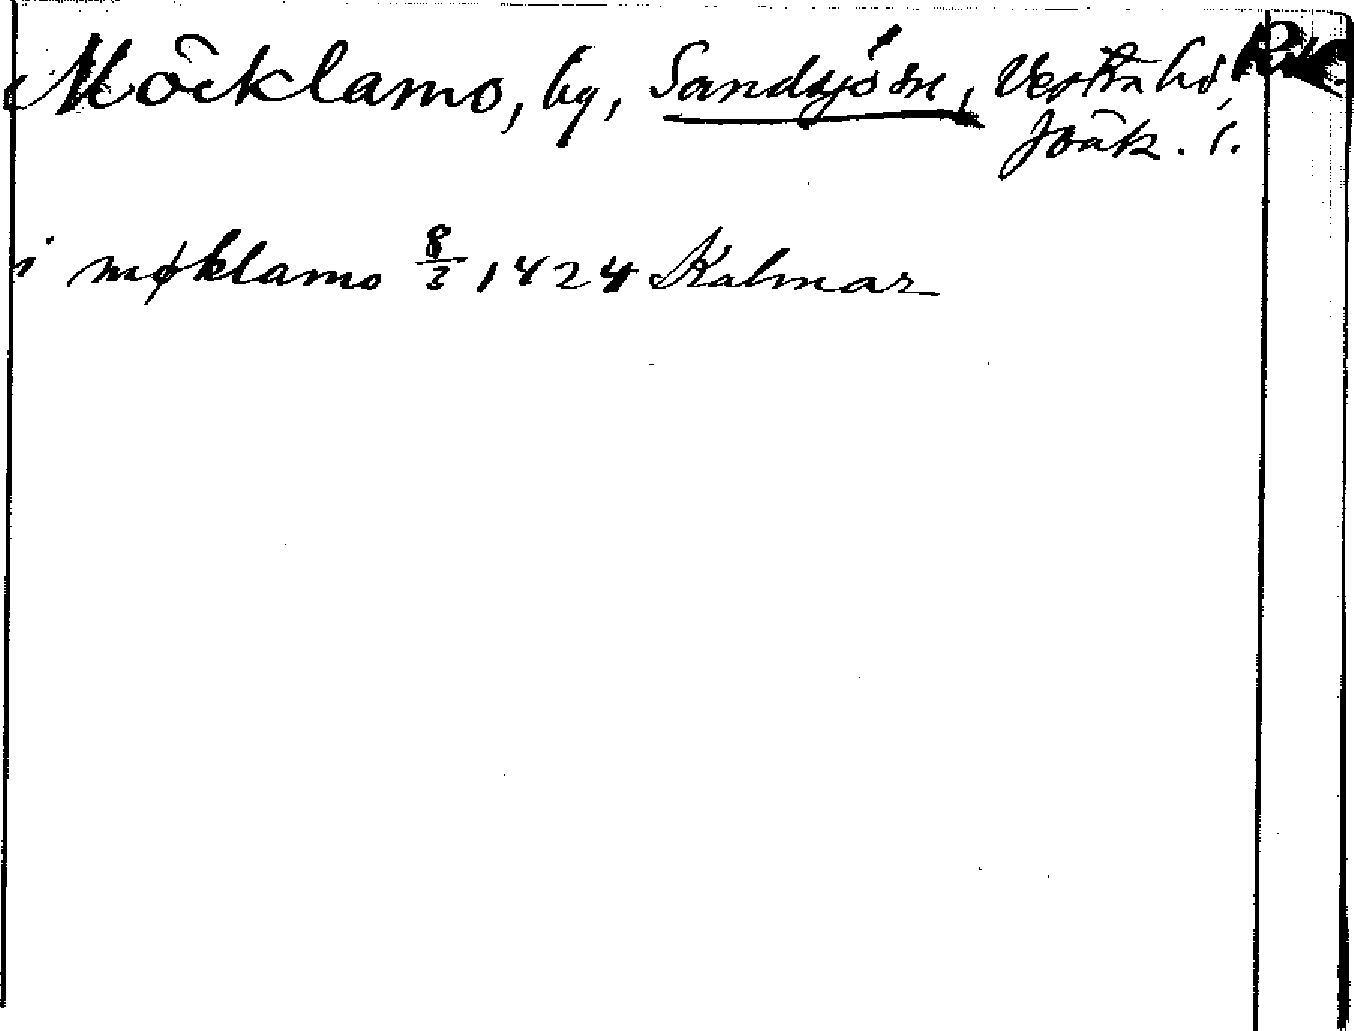 Möcklamo, by, Sandsjö sn, Vestra hd,
Jönk. l.
i møklamo 8/2 1424 Kalmar